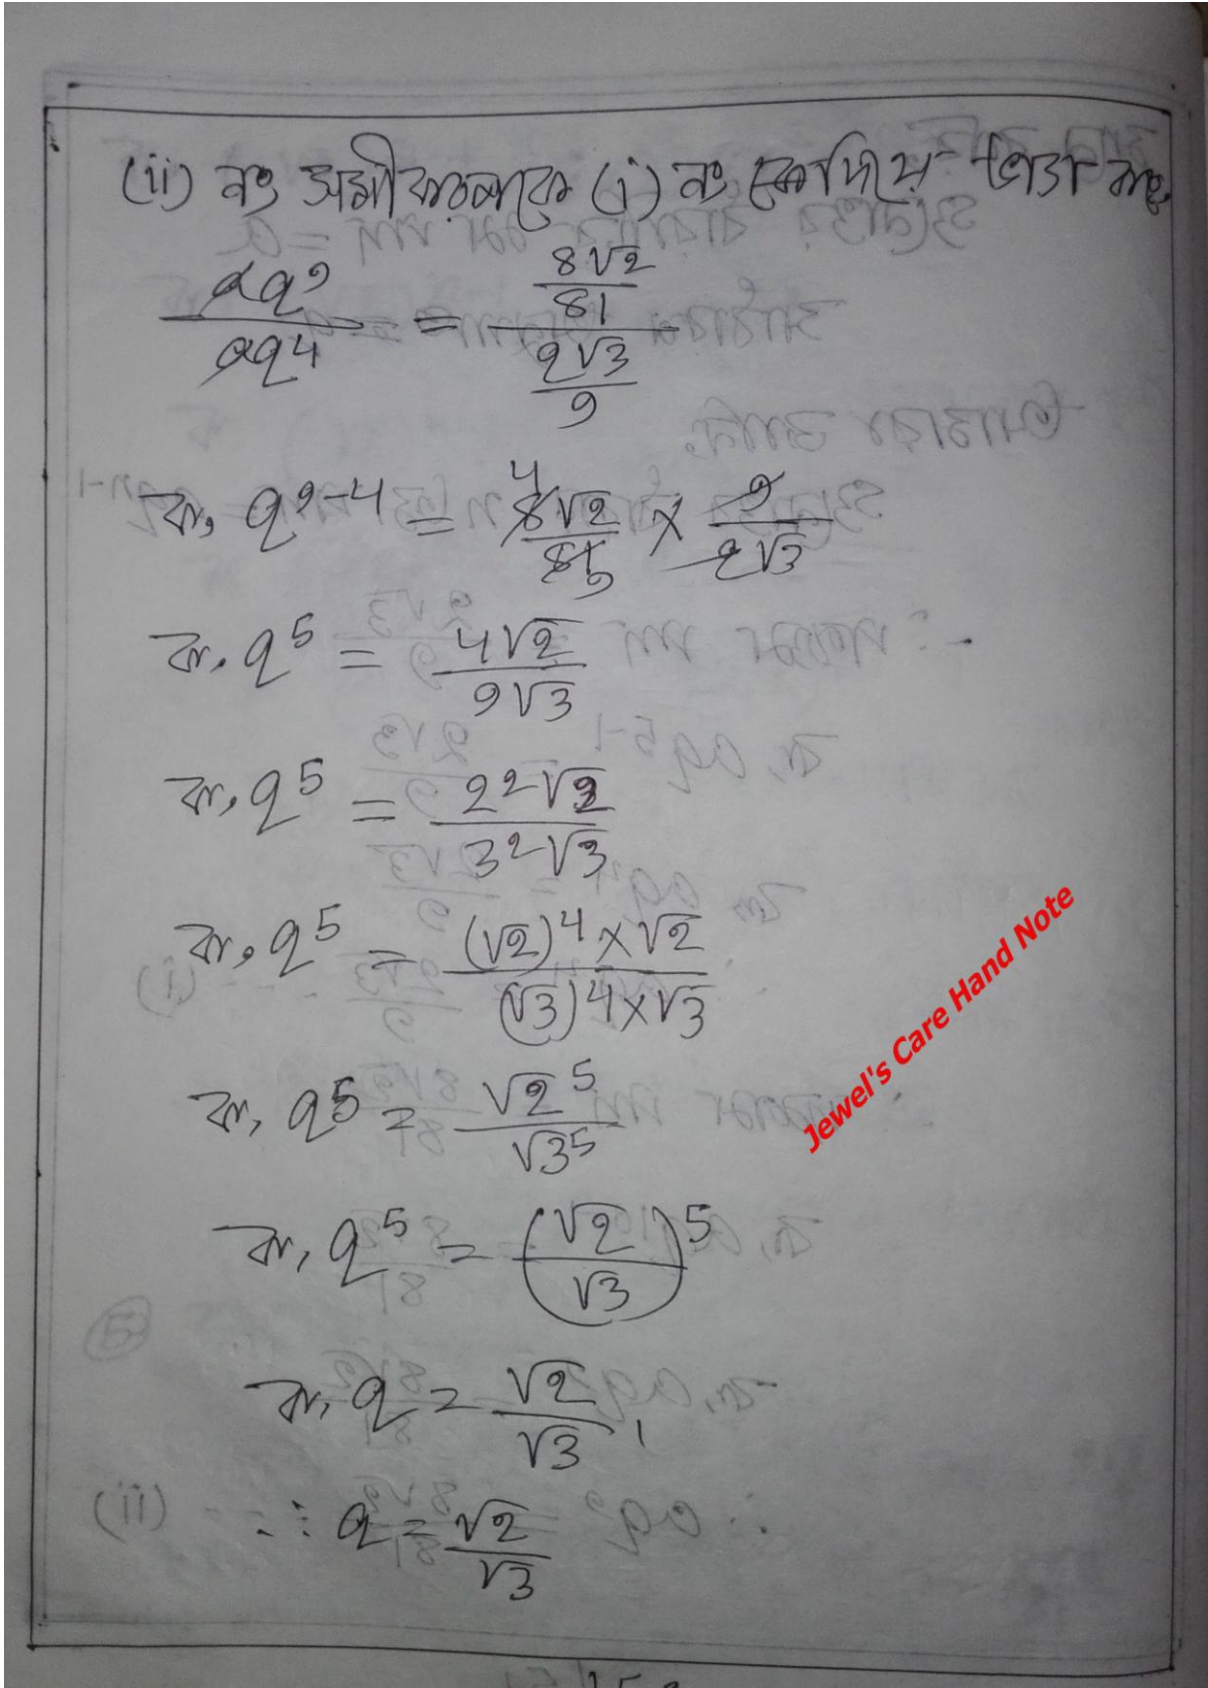 (ii) নং সমীকরণকে (i) নং কে দিয়ে ভাগ করে,
aq⁹/aq⁴ = (8√2/81)/(2√3/9)
বা, q⁹⁻⁴ = 8√2/81 × 9/2√3
বা, q⁵ = 4√2/9√3
বা, q⁵ = 2²√2/3²√3
বা, q⁵ = (√2)⁴×√2/(√3)⁴×√3
বা, q⁵ = √2⁵/√3⁵
বা, q⁵ = (√2/√3)⁵
বা, q = √2/√3
∴ q = √2/√3
Jewel's Care Hand Note